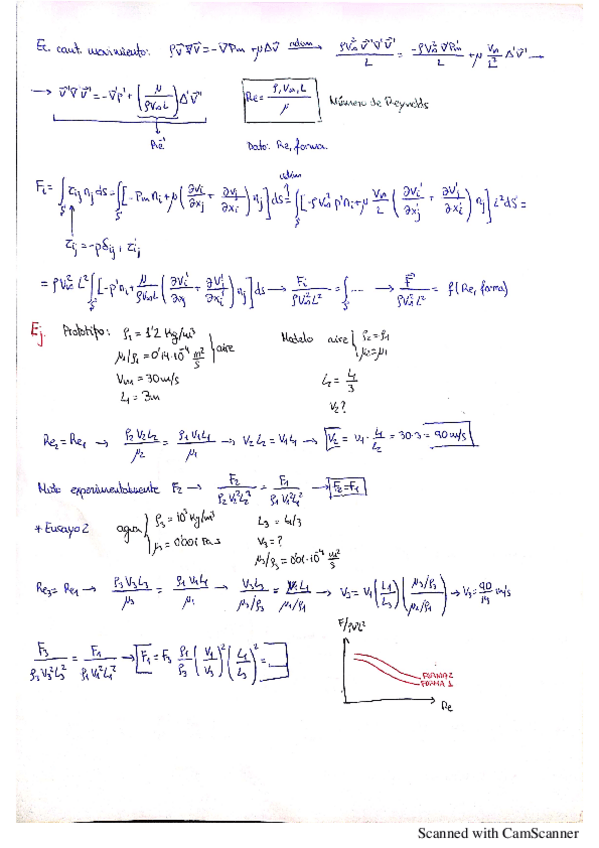 Ec. cant. movimiento: ρv̄·∇v̄ = -∇Pm + μΔv̄ adim → ρV∞² v̄'∇'v̄' / L = -ρV∞² ∇'Pm' / L + μ V∞/L² Δ'v̄' →
→ v̄'∇'v̄' = -∇'p' + (μ/ρV∞L) Δ'v̄' Re = ρ·V∞·L/μ Número de Reynolds
Re⁻¹ Dato: Re, forma.
adim
Fi = ∫s τij nj ds = ∫s [-Pm ni + μ(∂vi/∂xj + ∂vj/∂xi) nj] ds = ∫s' [-ρV∞² p' ni + μ V∞/L (∂vi'/∂xj' + ∂vj'/∂xi') nj] L² ds' =
τij = -pδij + τ'ij
= ρV∞² L² ∫s' [-p' ni + μ/ρV∞L (∂vi'/∂xj + ∂vj'/∂xi') nj] ds → Fi/ρV∞²L² = ∫s' .... → F̄/ρV∞²L² = f(Re, forma)
Ej. Prototipo: ρ1 = 1'2 Kg/m³ Modelo aire ρ2 = ρ1
μ1/ρ1 = 0'14·10⁻⁴ m²/s aire μ2 = μ1
V∞1 = 30 m/s L2 = L1/3
L1 = 3m V2?
Re2 = Re1 → ρ2 V2 L2/μ2 = ρ1 V1 L1/μ1 → V2 L2 = V1 L1 → V2 = V1 · L1/L2 = 30·3 = 90 m/s
Mido experimentalmente F2 → F2/ρ2 V2² L2² = F1/ρ1 V1² L1² → F2 = F1
* Ensayo 2 agua ρ3 = 10³ Kg/m³ L3 = L1/3
μ3 = 0'001 Pa·s V3 = ?
μ3/ρ3 = 0'01·10⁻⁴ m²/s
Re3 = Re1 → ρ3 V3 L3/μ3 = ρ1 V1 L1/μ1 → V3 L3/μ3/ρ3 = V1 L1/μ1/ρ1 → V3 = V1 (L1/L3) (μ3/ρ3 / μ1/ρ1) → V3 = 90/14 m/s
F3/ρ3 V3² L3² = F1/ρ1 V1² L1² → F1 = F3 ρ1/ρ3 (V1/V3)² (L1/L3)² =
F/ρV²L²
FORMA 2
FORMA 1
Re
Scanned with CamScanner